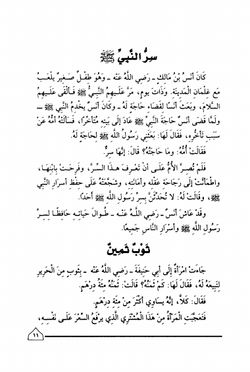 سِرُّ النَّبِيِّ ﷺ
كَانَ أَنَسُ بْنُ مَالِكٍ - رَضِيَ اللَّهُ عَنْهُ - وَهُوَ طِفْلٌ صَغِيرٌ يَلْعَبُ
مَعَ غِلْمَانِ الْمَدِينَةِ، وَذَاتَ يَوْمٍ، مَرَّ عَلَيْهِمُ النَّبِيُّ ﷺ فَأَلْقَى عَلَيْهِمُ
السَّلَامَ، وَبَعَثَ أَنَسًا لِقَضَاءِ حَاجَةٍ لَهُ - وَكَانَ أَنَسٌ يَخْدُمُ النَّبِيَّ ﷺ -
وَلَمَّا قَضَى أَنَسٌ حَاجَةَ النَّبِيِّ ﷺ عَادَ إِلَى بَيْتِهِ مُتَأَخِّرًا، فَسَأَلَتْهُ أُمُّهُ عَنْ
سَبَبِ تَأَخُّرِهِ، فَقَالَ لَهَا: بَعَثَنِي رَسُولُ اللَّهِ ﷺ لِحَاجَةٍ لَهُ.
فَقَالَتْ أُمُّهُ: وَمَا حَاجَتُهُ؟ قَالَ: إِنَّهَا سِرٌّ.
فَلَمْ تُصِرَّ الأُمُّ عَلَى أَنْ تَعْرِفَ هَذَا السِّرَّ، وَفَرِحَتْ بِابْنِهَا،
وَاطْمَأَنَّتْ إِلَى رَجَاحَةِ عَقْلِهِ وَأَمَانَتِهِ، وَشَجَّعَتْهُ عَلَى حِفْظِ أَسْرَارِ النَّبِيِّ
ﷺ، وَقَالَتْ لَهُ: لَا تُحَدِّثَنَّ بِسِرِّ رَسُولِ اللَّهِ ﷺ أَحَدًا.
وَقَدْ عَاشَ أَنَسٌ - رَضِيَ اللَّهُ عَنْهُ - طَوَالَ حَيَاتِهِ حَافِظًا لِسِرِّ
رَسُولِ اللَّهِ ﷺ وَأَسْرَارِ النَّاسِ جَمِيعًا.
ثَوْبٌ ثَمِينٌ
جَاءَتِ امْرَأَةٌ إِلَى أَبِي حَنِيفَةَ - رَضِيَ اللَّهُ عَنْهُ - بِثَوْبٍ مِنَ الْحَرِيرِ
لِتَبِيعَهُ لَهُ، فَقَالَ لَهَا: كَمْ ثَمَنُهُ؟ قَالَتْ: ثَمَنُهُ مِئَةُ دِرْهَمٍ.
فَقَالَ: كَلَّا، إِنَّهُ يُسَاوِي أَكْثَرَ مِنْ مِئَةِ دِرْهَمٍ.
فَتَعَجَّبَتِ الْمَرْأَةُ مِنْ هَذَا الْمُشْتَرِي الَّذِي يَرْفَعُ السِّعْرَ عَلَى نَفْسِهِ،
١١